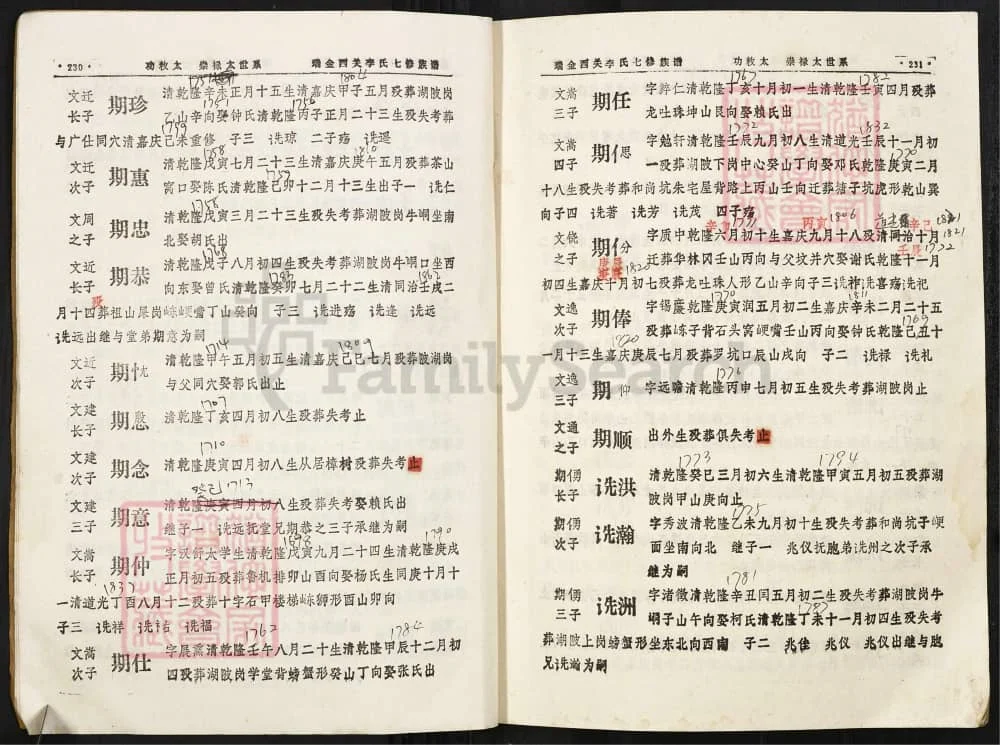 ·230· 功敕太 崇禄太世系 瑞金西关李氏七修族谱
1751 1804
文迁长子 期珍 清乾隆辛未正月十五生清嘉庆甲子五月殁葬湖陂岗
1751 1756
乙山辛向娶钟氏清乾隆丙子正月二十三生殁失考葬
1799
与广仕同穴清嘉庆己未重修 子三 诜琼 二子殇 诜遥
1758 1810
文迁次子 期惠 清乾隆戊寅七月二十三生清嘉庆庚午五月殁葬茶山
1759
窝口娶陈氏清乾隆己卯十二月十三生出子一 诜仁
1758
文周之子 期忠 清乾隆戊寅三月二十三生殁失考葬湖陂岗牛㘭坐南
北娶胡氏出
1768
文近长子 期恭 清乾隆戊子八月初四生殁失考葬湖陂岗牛㘭口坐西
1783 1862
向东娶曾氏清乾隆癸卯七月二十二生清同治壬戌二
殁
月十四葬祖山屎岗崠峺嘴丁山癸向 子三 诜进殇 诜逢 诜远
诜远出继与堂弟期意为嗣
1714 1809
文近次子 期忱 清乾隆甲午五月初五生清嘉庆己巳七月殁葬湖陂岗
与父同穴娶郭氏出止
1707
文建长子 期慇 清乾隆丁亥四月初八生殁葬失考止
1710
文建次子 期念 清乾隆庚寅四月初八生从居樟树殁葬失考止
癸己 1713
文建三子 期意 清乾隆庚寅四月初八生殁葬失考娶赖氏出
继子一 诜远抚堂兄期恭之三子承继为嗣
1698 1790
文嵩长子 期仲 字汉舒太学生清乾隆戊寅九月二十四生清乾隆庚戌
正月初五殁葬鲁机排卯山酉向娶杨氏生同庚十月十
1837
一清道光丁酉八月十二殁葬十字石甲楼梯崠狮形酉山卯向
子三 诜祥 诜祐 诜福
1762 1784
文嵩次子 期仕 字晨薰清乾隆壬午八月二十生清乾隆甲辰十二月初
四殁葬湖陂岗学堂背螃蟹形癸山丁向娶张氏出
瑞金西关李氏七修族谱 功敕太 崇禄太世系 ·231·
1767 1782
文嵩三子 期任 字辫仁清乾隆丁亥十月初一生清乾隆壬寅四月殁葬
龙吐珠坤山艮向娶赖氏出
1772 1832
文嵩四子 期偲 字勉轩清乾隆壬辰九月初八生清道光壬辰十一月初
1770
一殁葬湖陂下岗中心癸山丁向娶邓氏乾隆庚寅二月
十八生殁失考葬和尚坑朱屯屋背路上丙山壬向迁葬禃子坑虎形乾山巽
向子四 诜著 诜芳 诜茂 四子殇
辛卯 1771 丙寅 1806 道光 辛已 1821
文饶之子 期份 字质中乾隆六月初十生嘉庆九月十八殁清同治十月
1821
壬辰 1772
迁葬华林冈壬山丙向与父坟并穴娶谢氏乾隆十一月
庚辰 1820
初四生嘉庆十月初七殁葬龙吐珠人形乙山辛向子三诜神诜喜殇诜祀
1770 1811
文逸次子 期俸 字锡廉乾隆庚寅润五月初二生嘉庆辛未二月二十五
1769
殁葬崠子背石头窝峺嘴壬山丙向娶钟氏乾隆己丑十
1820
一月十三生嘉庆庚辰七月殁葬罗坑口辰山戌向 子二 诜禄 诜礼
1776
文逸三子 期仰 字远瞻清乾隆丙申七月初五生殁失考葬湖陂岗止
文通之子 期顺 出外生殁葬俱失考止
1773 1794
期俑长子 诜洪 清乾隆癸巳三月初六生清乾隆甲寅五月初五殁葬湖
陂岗甲山庚向止
1775
期俑次子 诜瀚 字秀波清乾隆乙未九月初十生殁失考葬和尚坑子峺
面坐南向北 继子一 兆仪抚胞弟诜州之次子承
继为嗣
1781
期俑三子 诜洲 字渚徵清乾隆辛丑闰五月初二生殁失考葬湖陂岗牛
1787
㘭子山午向娶柯氏清乾隆丁未十一月初四生殁失考
葬湖陂上岗螃蟹形坐东北向西南 子二 兆佳 兆仪 兆仪出继与胞
兄诜瀚为嗣
FamilySearch